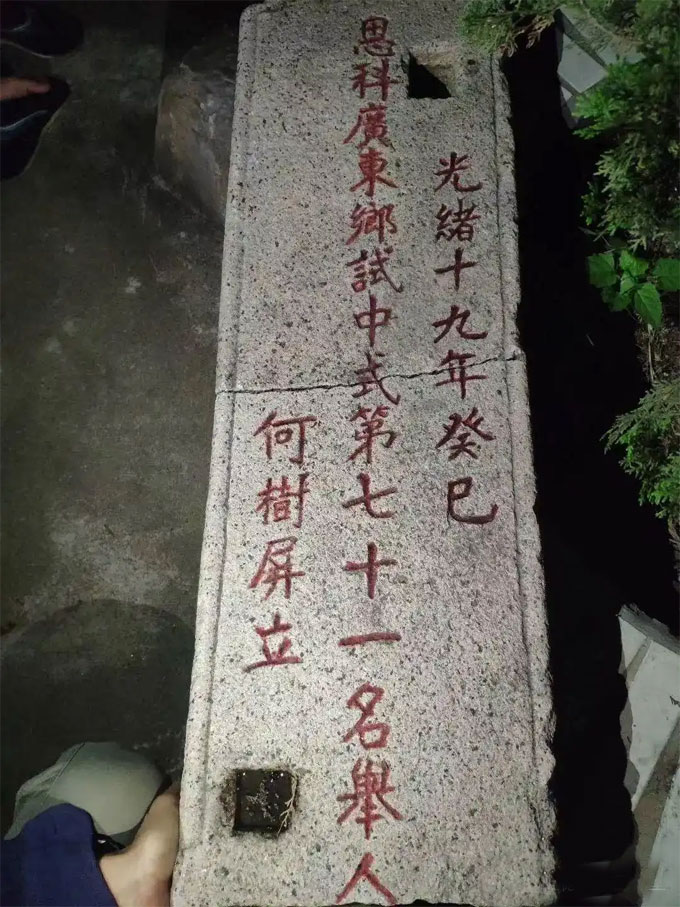 光緒十九年癸巳
恩科廣東鄉試中式第七十一名舉人
何樹屏立